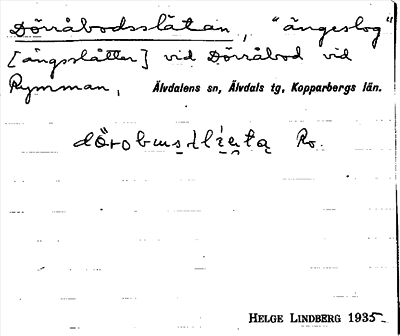 Dörråbodsslåtan, "ängeslog"
[ängsslåtter] vid Dörråbod vid
Rymman, Älvdalens sn, Älvdals tg, Kopparbergs län.
Ro.
HELGE LINDBERG 1935